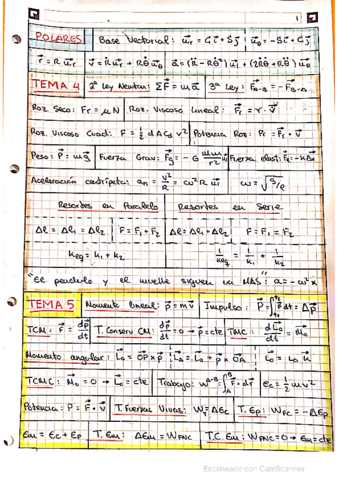 1
POLARES Base Vectorial: u⃗r = Cî + Sĵ | u⃗θ = -Sî + Cĵ
r⃗ = R u⃗r | v⃗ = Ṙ u⃗r + Rθ̇ u⃗θ | a⃗ = (R̈ - Rθ̇²) u⃗r + (2Ṙθ̇ + Rθ̈) u⃗θ
TEMA 4 2ª Ley Newton: ΣF⃗ = m a⃗ | 3ª Ley: F⃗A-B = -F⃗B-A
Roz. Seco: Fr = μ N | Roz. Viscoso Lineal: F⃗r = r · v⃗
Roz. Viscoso Cuad: F = 1/2 d A Cd v² | Potencia Roz: Pr = F⃗r · v⃗
Peso: P⃗ = m g⃗ | Fuerza Grav: F⃗g = - G m m / r² u⃗r | Fuerza elást: F⃗e = -K Δx
Aceleración centrípeta: an = v²/R = ω² R u⃗r | ω = √g/l
Resortes en Paralelo | Resortes en Serie
Δl = Δl1 = Δl2 | F = F1 + F2 | Δl = Δl1 + Δl2 | F = F1 = F2
Keq = k1 + k2 | 1/keq = 1/k1 + 1/k2
"El péndulo y el muelle siguen un MAS" a = -ω² x
TEMA 5 Momento lineal: p⃗ = m v⃗ | Impulso: P⃗ = ∫ F⃗ dt = Δp⃗
TCM: F⃗ = dp⃗/dt | T. Conserv CM: dp⃗/dt = 0 → p⃗ = cte | TMC: dL⃗o/dt = M⃗o
Momento angular: L⃗o = OP⃗ × p⃗ | L⃗A = L⃗o + p⃗ × OA⃗ | L⃗o = Lo u⃗
TCMC: M⃗o = 0 → L⃗o = cte | Trabajo: W A→B = ∫ F⃗ · dr⃗ | Ec = 1/2 m v²
Potencia: P = F⃗ · v⃗ | T. Fuerzas Vivas: W = ΔEc | T. Ep: WFC = -ΔEp
Em = Ec + Ep | T. Em: ΔEm = WFNC | T.C. Em: WFNC = 0 → Em = cte
Escaneado con CamScanner